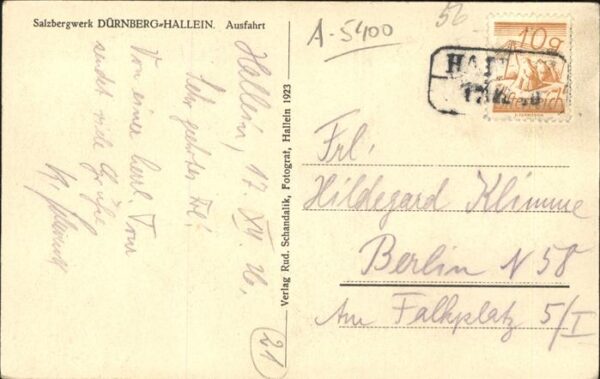 Salzbergwerk DÜRNBERG-HALLEIN. Ausfahrt
Hallein, 17. XII. 26.
Sehr geehrtes Frl!
Von einer herrl. Tour
sendet viele Grüße
Verlag Rud. Schandalik, Fotograf, Hallein 1923
A-5400
56
10g
HA
17
Frl:
Hildegard Klimme
Berlin N 58
Am Falkplatz 5/I
21